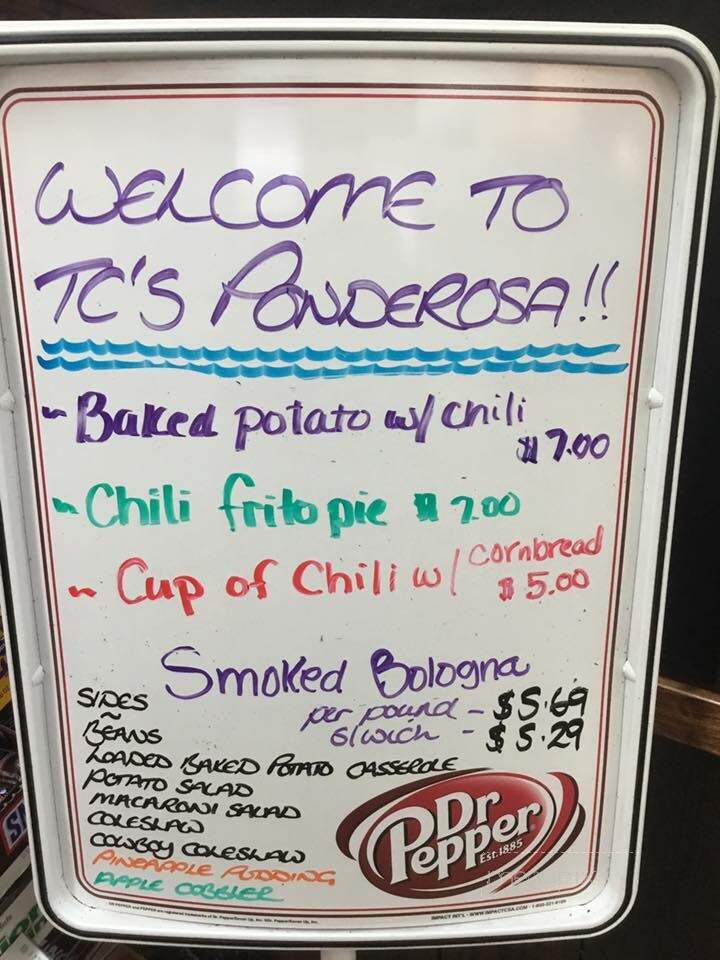 WELCOME TO
TC'S PONDEROSA!!
~ Baked potato w/ chili
$7.00
~ Chili frito pie $7.00
~ Cup of Chili w/ cornbread
$5.00
Smoked Bologna
per pound - $5.69
s/wich - $5.29
SIDES
~
BEANS
LOADED BAKED POTATO CASSEROLE
POTATO SALAD
MACARONI SALAD
COLESLAW
COWBOY COLESLAW
PINEAPPLE PUDDING
APPLE COBBLER
Dr
Pepper
Est. 1885